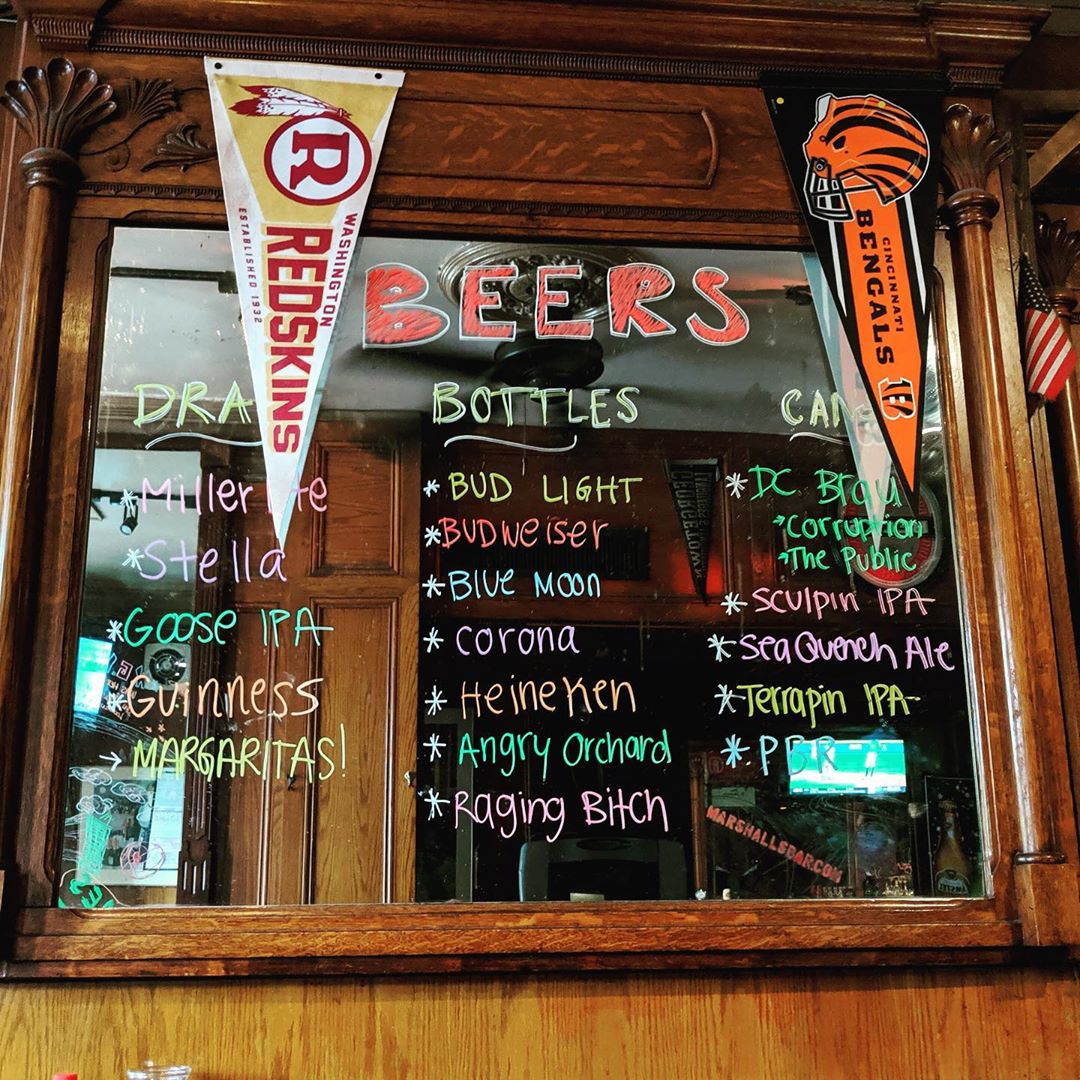 R
WASHINGTON
REDSKINS
ESTABLISHED 1932
CINCINNATI
BENGALS
B
BEERS
DRA
* Miller
* Stella
* Goose IPA
* Guinness
→ MARGARITAS!
BOTTLES
* BUD LIGHT
* BUDWEISER
* BLUE MOON
* Corona
* Heineken
* Angry Orchard
* Raging Bitch
CAN
* DC Brau
→ Corruption
→ The Public
* Sculpin IPA
* SeaQuench Ale
* Terrapin IPA
* PBR
GEORGETOWN
MARSHALLSBAR.COM
AMSTEL